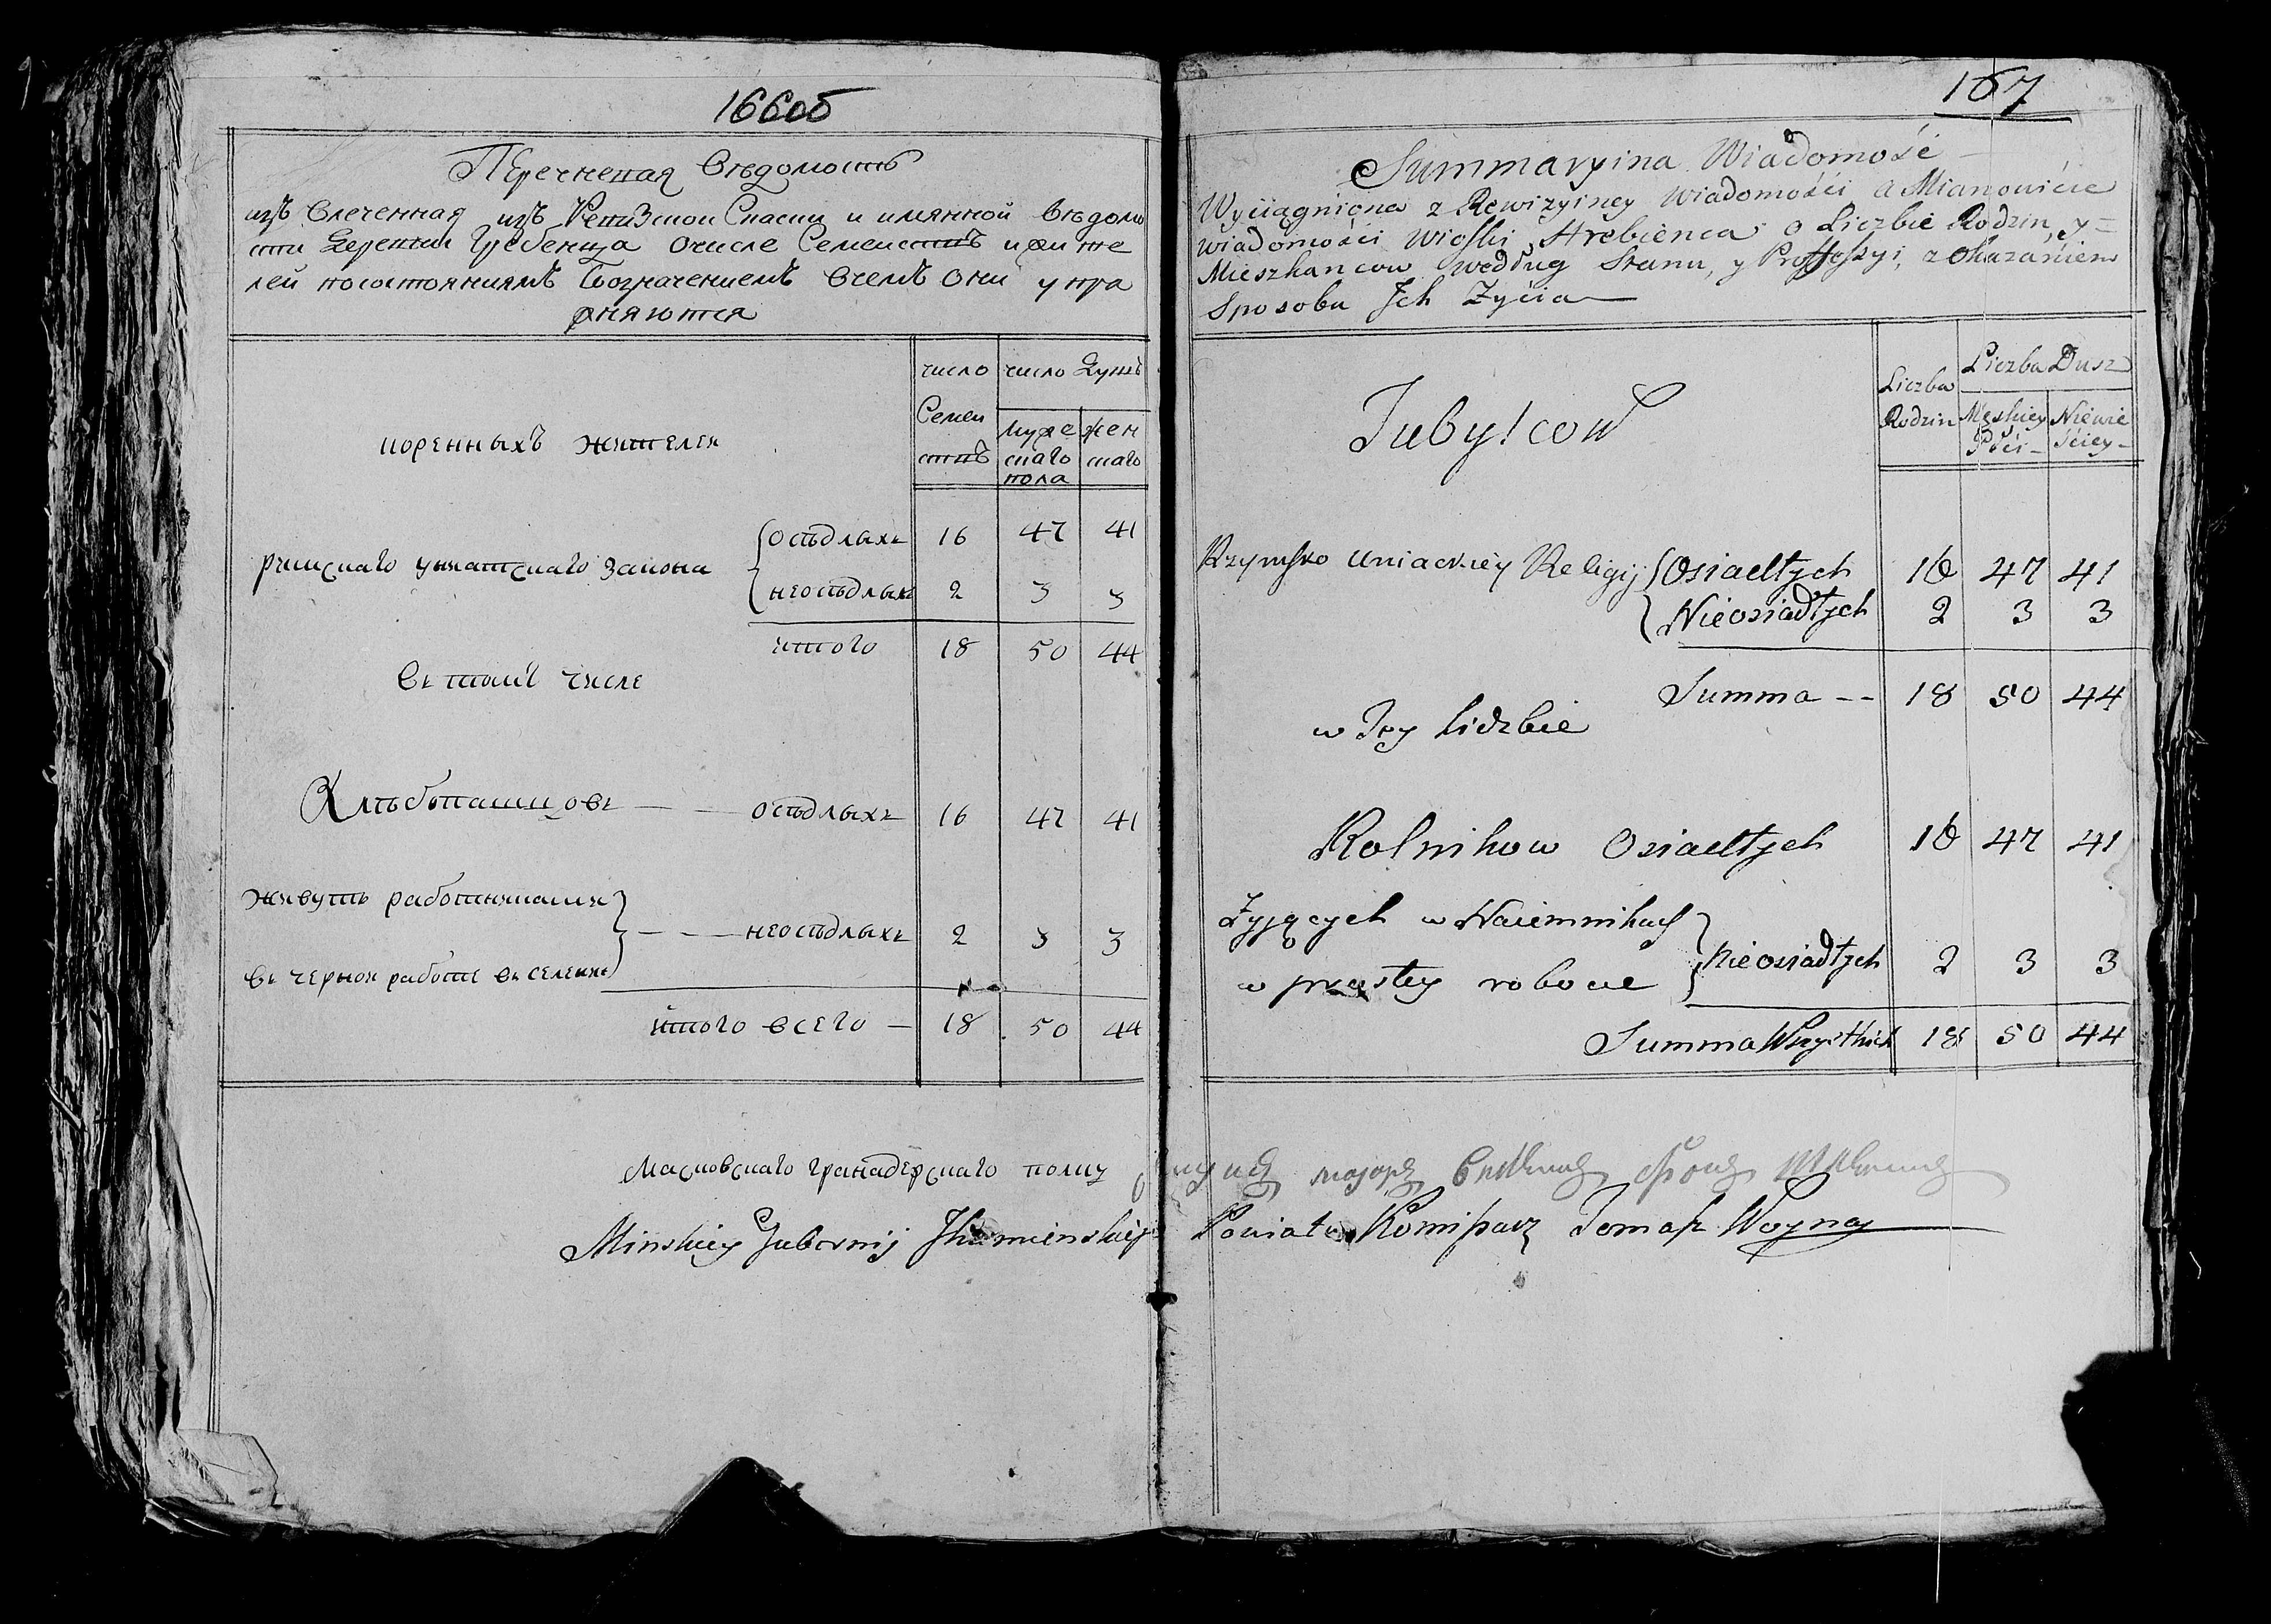 166об
Перечневая Вѣдомость
изъ влеченная изъ Ревизской Скаски и имянной вѣдомо
сти Деревни Гребенца очисле Семействъ ижите
лей посостояниямъ Собозначениемъ вчемъ они упра
жняются
коренныхъ жителей
число
Семей
ствъ
число Душъ
муже
скаго
пола
жен
скаго
римскаго униатскаго закона
осѣдлыхъ 16 47 41
неосѣдлыхъ 2 3 3
итого 18 50 44
въ томъ числе
Хлѣбопашцовъ — — осѣдлыхъ 16 47 41
живутъ работниками
въ черной работе въ селении
— — неосѣдлыхъ 2 3 3
итого всего — 18 50 44
Московскаго гранадерскаго полку
167
Summaryina Wiadomość
Wyciągniona z Rewizyiney Wiadomości a Mianowicie
wiadomości Wioski Hrebienca o Liczbie Rodzin, y=
Mieszkancow według Stanu, y Proffessyi, z okazaniem
Sposobu Ich Zycia
Tubylcow
Liczba
Rodzin
Liczba Dusz
Męskiey
Płci
Niewie
ściey
Rzymsko Uniackiey Religij
Osiadłych 16 47 41
Nieosiadłych 2 3 3
Summa -- 18 50 44
w Tey liczbie
Rolnikow Osiadłych 16 47 41
Żyjących w Naiemnikach
w prostey robocie
nieosiadłych 2 3 3
Summa Wszystkich 18 50 44
маіоръ
Minskiey Gubernij Ihumienskiego Powiatu Komisarz Tomasz Woyna